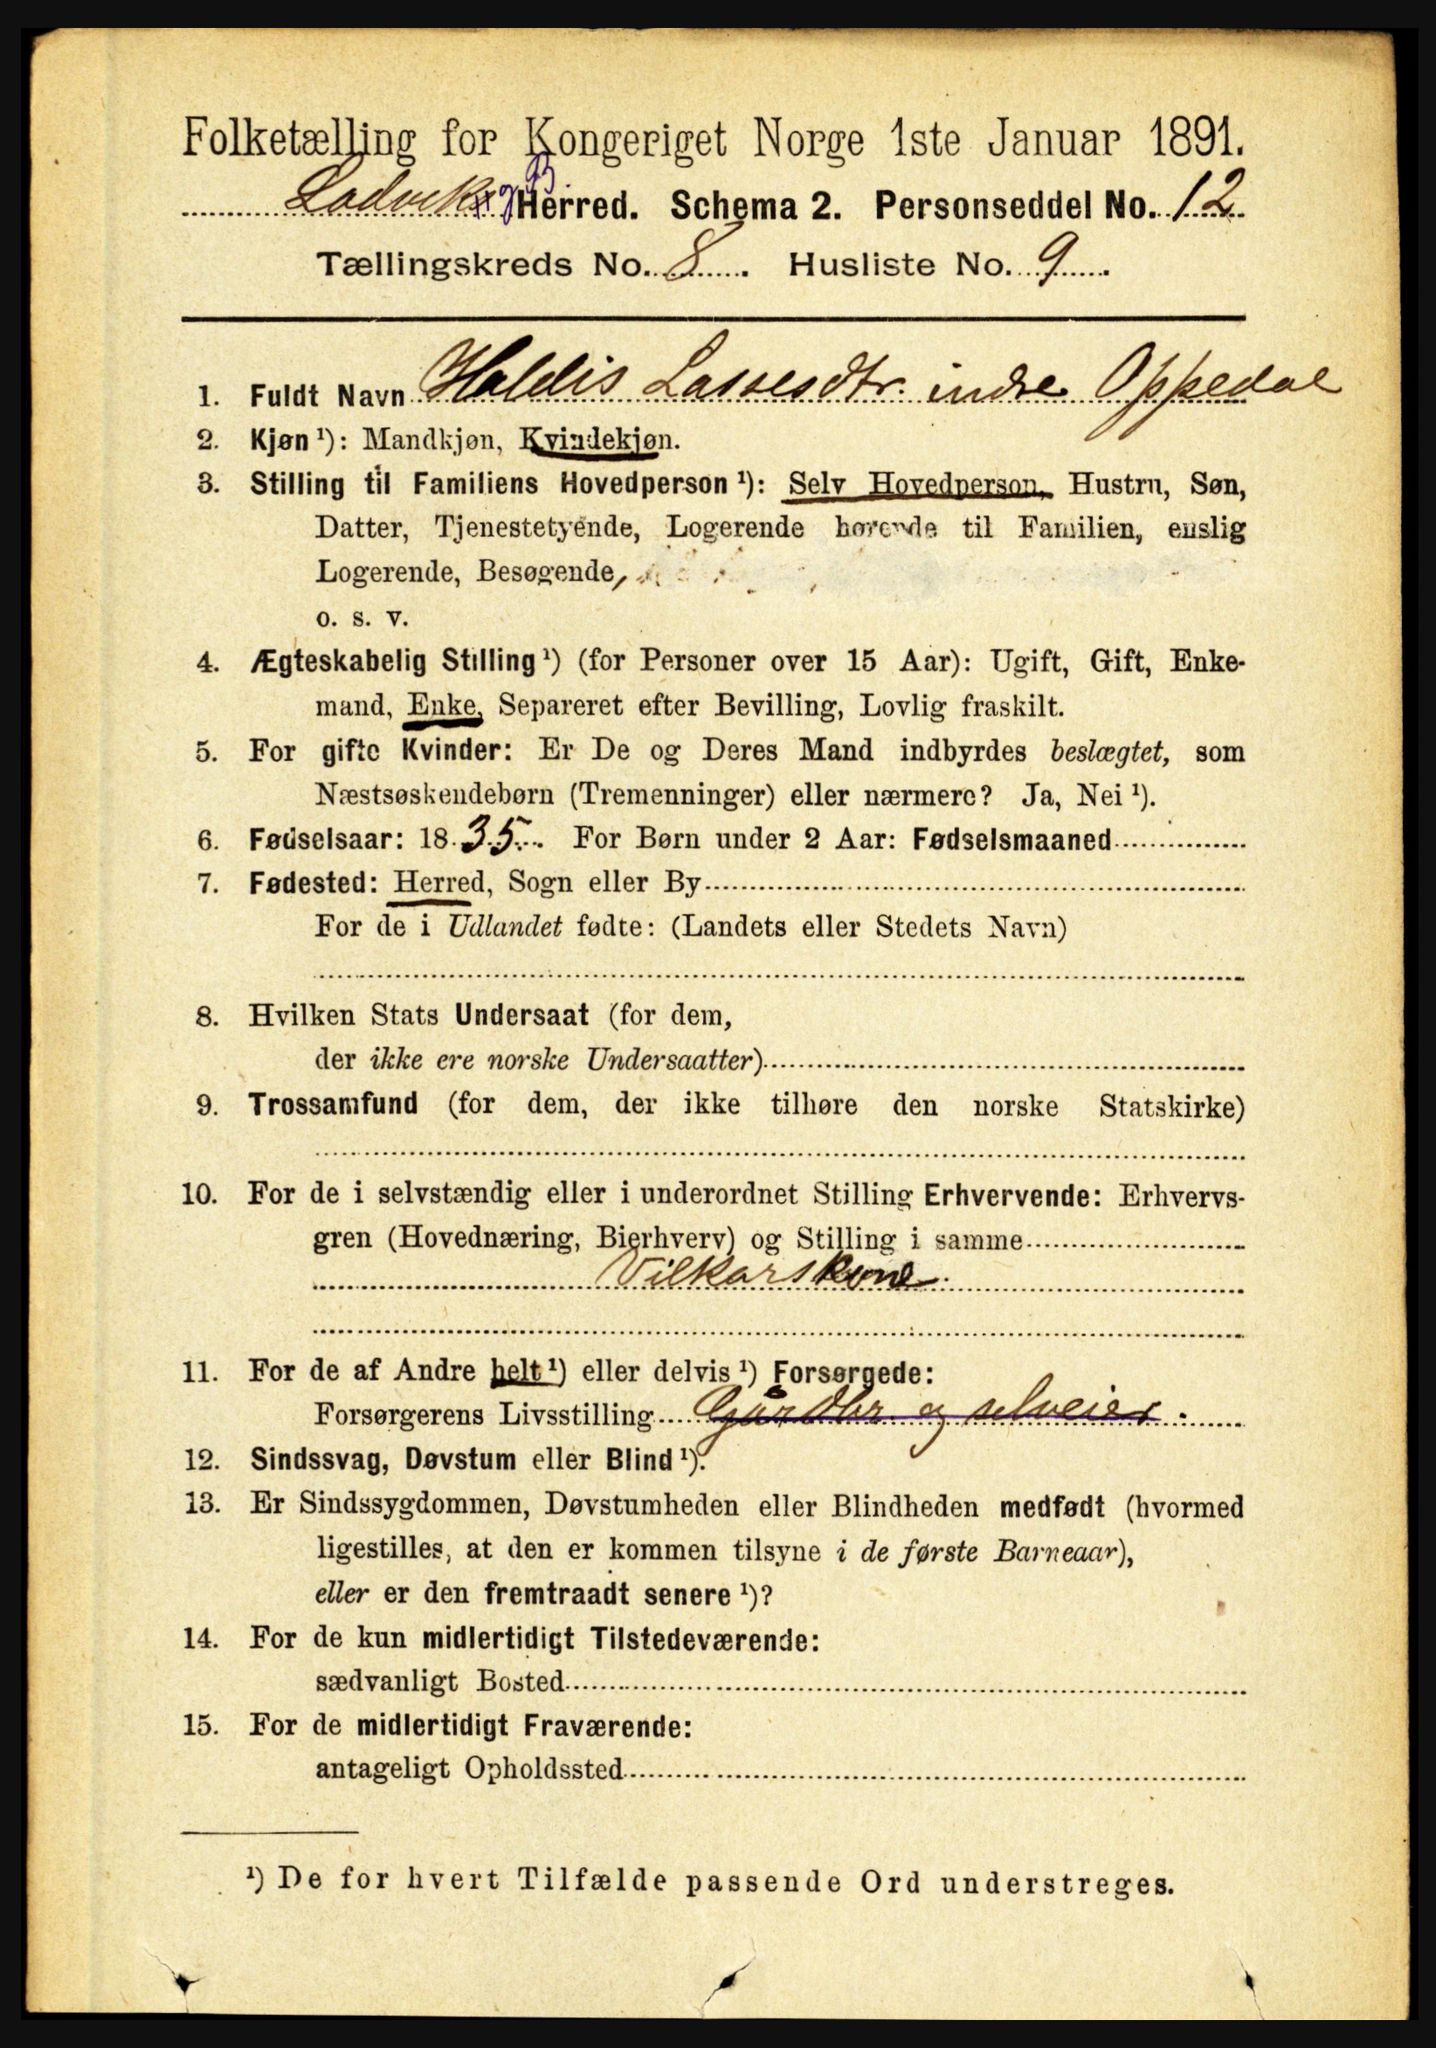 Folketælling for Kongeriget Norge 1ste Januar 1891.
Ladviks og B. Herred. Schema 2. Personseddel No. 12
Tællingskreds No. 8. Husliste No. 9.
1. Fuldt Navn Haldis Lassesdtr. indre Oppedal
2. Kjøn ¹): Mandkjøn, Kvindekjøn.
3. Stilling til Familiens Hovedperson ¹): Selv Hovedperson, Hustru, Søn,
Datter, Tjenestetyende, Logerende hørende til Familien, enslig
Logerende, Besøgende,
o. s. v.
4. Ægteskabelig Stilling ¹) (for Personer over 15 Aar): Ugift, Gift, Enke-
mand, Enke, Separeret efter Bevilling, Lovlig fraskilt.
5. For gifte Kvinder: Er De og Deres Mand indbyrdes beslægtet, som
Næstsøskendebørn (Tremenninger) eller nærmere? Ja, Nei ¹).
6. Fødselsaar: 1835. For Børn under 2 Aar: Fødselsmaaned
7. Fødested: Herred, Sogn eller By
For de i Udlandet fødte: (Landets eller Stedets Navn)
8. Hvilken Stats Undersaat (for dem,
der ikke ere norske Undersaatter)
9. Trossamfund (for dem, der ikke tilhøre den norske Statskirke)
10. For de i selvstændig eller i underordnet Stilling Erhvervende: Erhvervs-
gren (Hovednæring, Bierhverv) og Stilling i samme
Vilkarskone
11. For de af Andre helt ¹) eller delvis ¹) Forsørgede:
Forsørgerens Livsstilling Gårdbr. og selveier.
12. Sindssvag, Døvstum eller Blind ¹).
13. Er Sindssygdommen, Døvstumheden eller Blindheden medfødt (hvormed
ligestilles, at den er kommen tilsyne i de første Barneaar),
eller er den fremtraadt senere ¹)?
14. For de kun midlertidigt Tilstedeværende:
sædvanligt Bosted
15. For de midlertidigt Fraværende:
antageligt Opholdssted
¹) De for hvert Tilfælde passende Ord understreges.